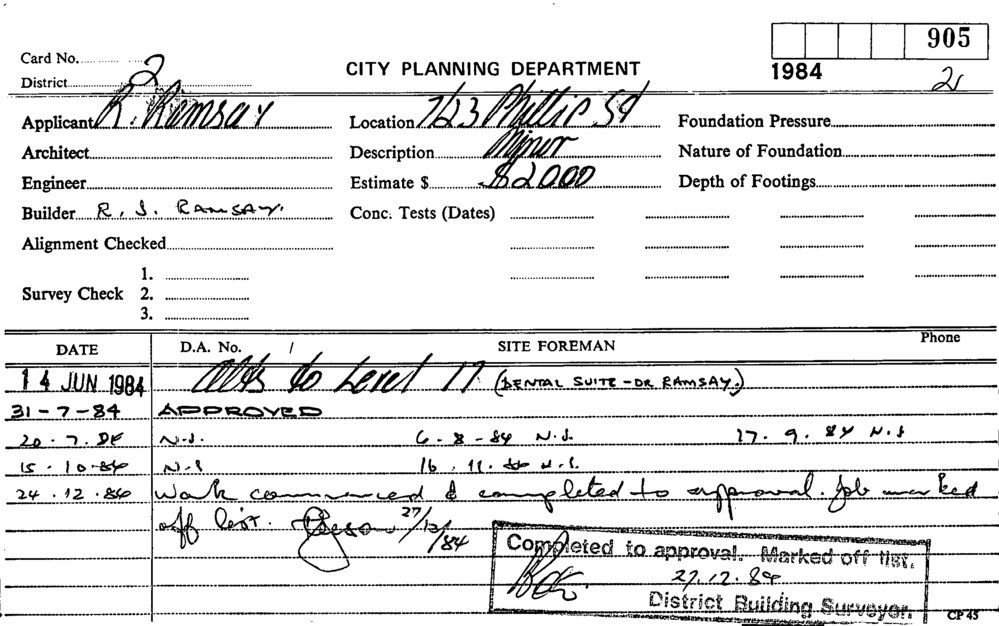 905
Card No. 2
CITY PLANNING DEPARTMENT
1984
2
District
Applicant R. Ramsay
Location 7/23 Phillip St
Foundation Pressure
Architect
Description Minor
Nature of Foundation
Engineer
Estimate $ $2000
Depth of Footings
Builder R. J. RAMSAY.
Conc. Tests (Dates)
Alignment Checked
1.
Survey Check 2.
3.
DATE D.A. No. / SITE FOREMAN Phone
14 JUN 1984 Alts to Level 17 (DENTAL SUITE - DR RAMSAY.)
31-7-84 APPROVED
20.7.84 N.S. 6-8-84 N.S. 17.9.84 N.S
15.10.84 N.S 16.11.84 N.S.
24.12.84 Work commenced & completed to approval. Job marked
off list. 27/12/84
Completed to approval. Marked off list.
27.12.84
District Building Surveyor.
CP 45